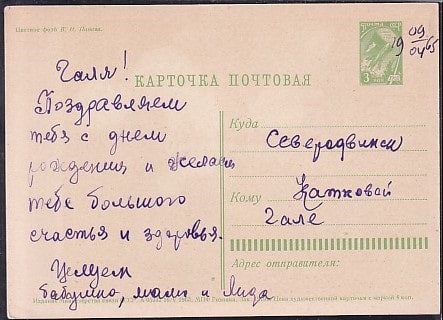 Цветное фото В. П. Панова.
ПОЧТА СССР
3 КОП
19 09/04 65
Галя!
КАРТОЧКА ПОЧТОВАЯ
Поздравляем
тебя с днем
рождения и желаем
тебе большого
счастья и здоровья.
Целуем
бабушка, мама и Лида
Куда
Северодвинск
Кому
Катковой
Гале
Адрес отправителя:
Цена художественной карточки с маркой 5 коп.